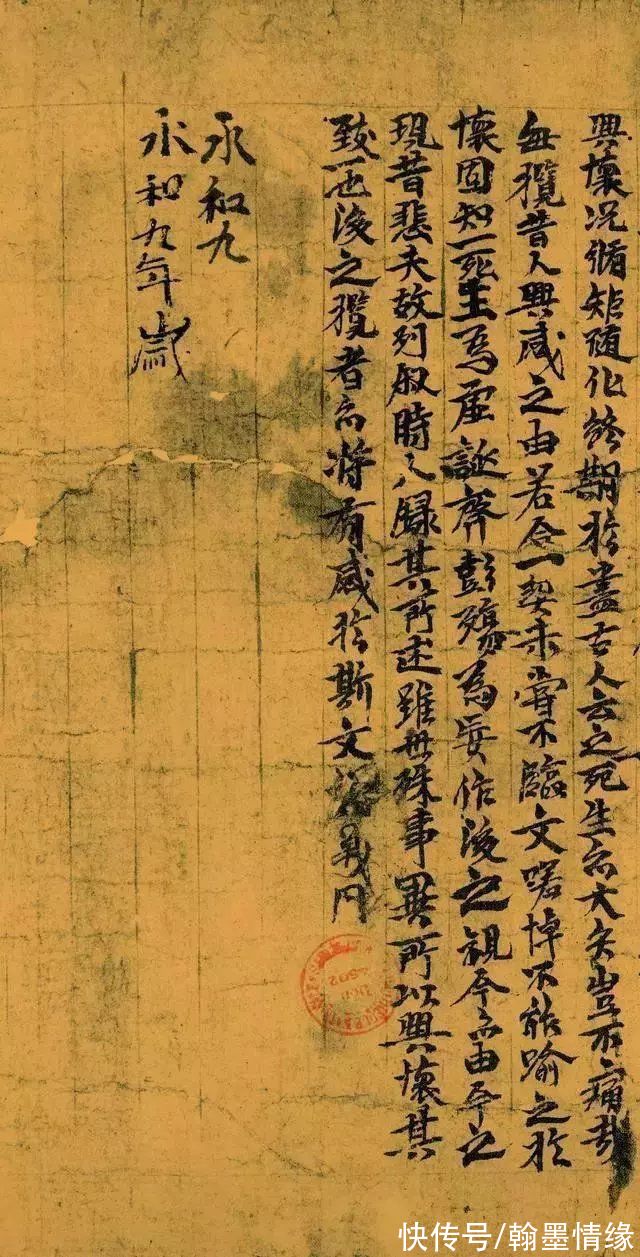 興懷况脩矩随化終期於盡古人云之死生亦大矣豈不痛哉
每攬昔人興感之由若合一契未甞不臨文嗟悼不能喻之於
懷固知一死生為虚誕齊彭殤為妄作後之視今亦由今之
視昔悲夫故列叙時人録其所述雖世殊事異所以興懷其
致一也後之攬者亦將有感於斯文
永和九
永和九年歲
快传号/翰墨情缘